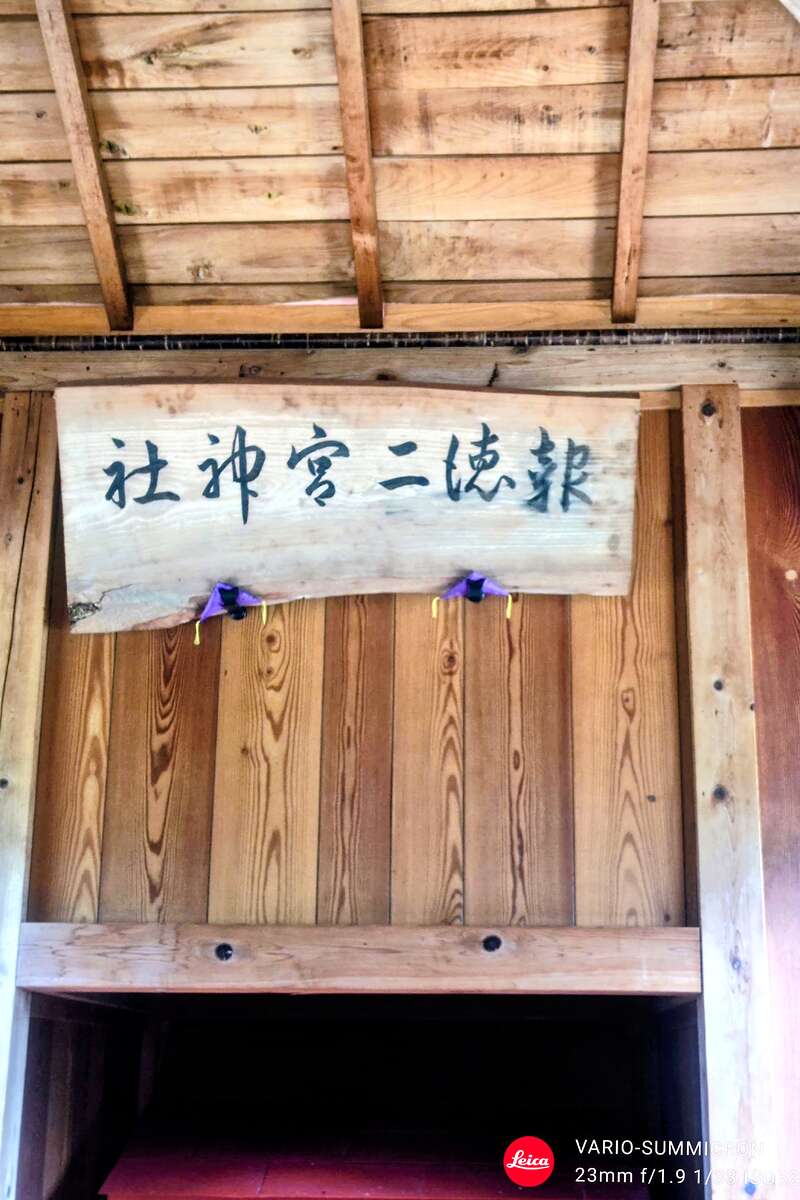 報徳二宮神社
Leica
VARIO-SUMMICRON
23mm f/1.9